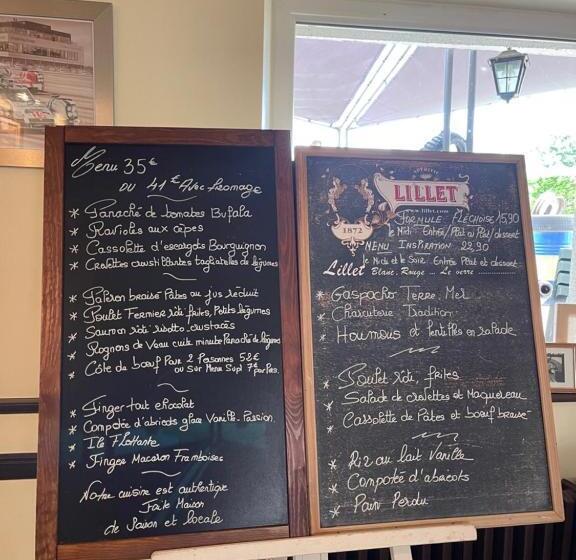 Menu 35€
ou 41€ Avec fromage
* Panaché de tomates Bufala
* Ravioles aux cèpes
* Cassolette d'escargots Bourguignon
* Crevettes crunsh Blantes tagliatelles de légumes
* Paleron braisé Pâtes au jus réduit
* Poulet Fermier rôti frites, Petits légumes
* Saumon rôti risotto crustacés
* Rognons de Veau cuits minute Panaché de légumes
* Côte de bœuf Pour 2 Personnes 58€
ou sur Menu Supl 7€ par Pers.
* Finger tout chocolat
* Compotée d'abricots glace Vanille-Passion.
* Ile Flottante
* Finger Macaron Framboises
Notre cuisine est authentique
Faite Maison
de Saison et locale
LILLET
www.lillet.com
1872
FORMULE FLÉCHOISE 15,90
le Midi Entrée/Plat ou Plat/dessert
MENU INSPIRATION 22,90
le Midi et le Soir Entrée Plat et dessert
Lillet Blanc, Rouge ... Le verre
* Gaspacho Terre Mer
* Charcuterie Tradition
* Houmous et lentilles en salade
* Poulet rôti, frites
* Salade de crevettes et Maquereau
* Cassolette de Pates et bœuf braisé
* Riz au lait Vanille
* Compotée d'abricots
* Pain Perdu